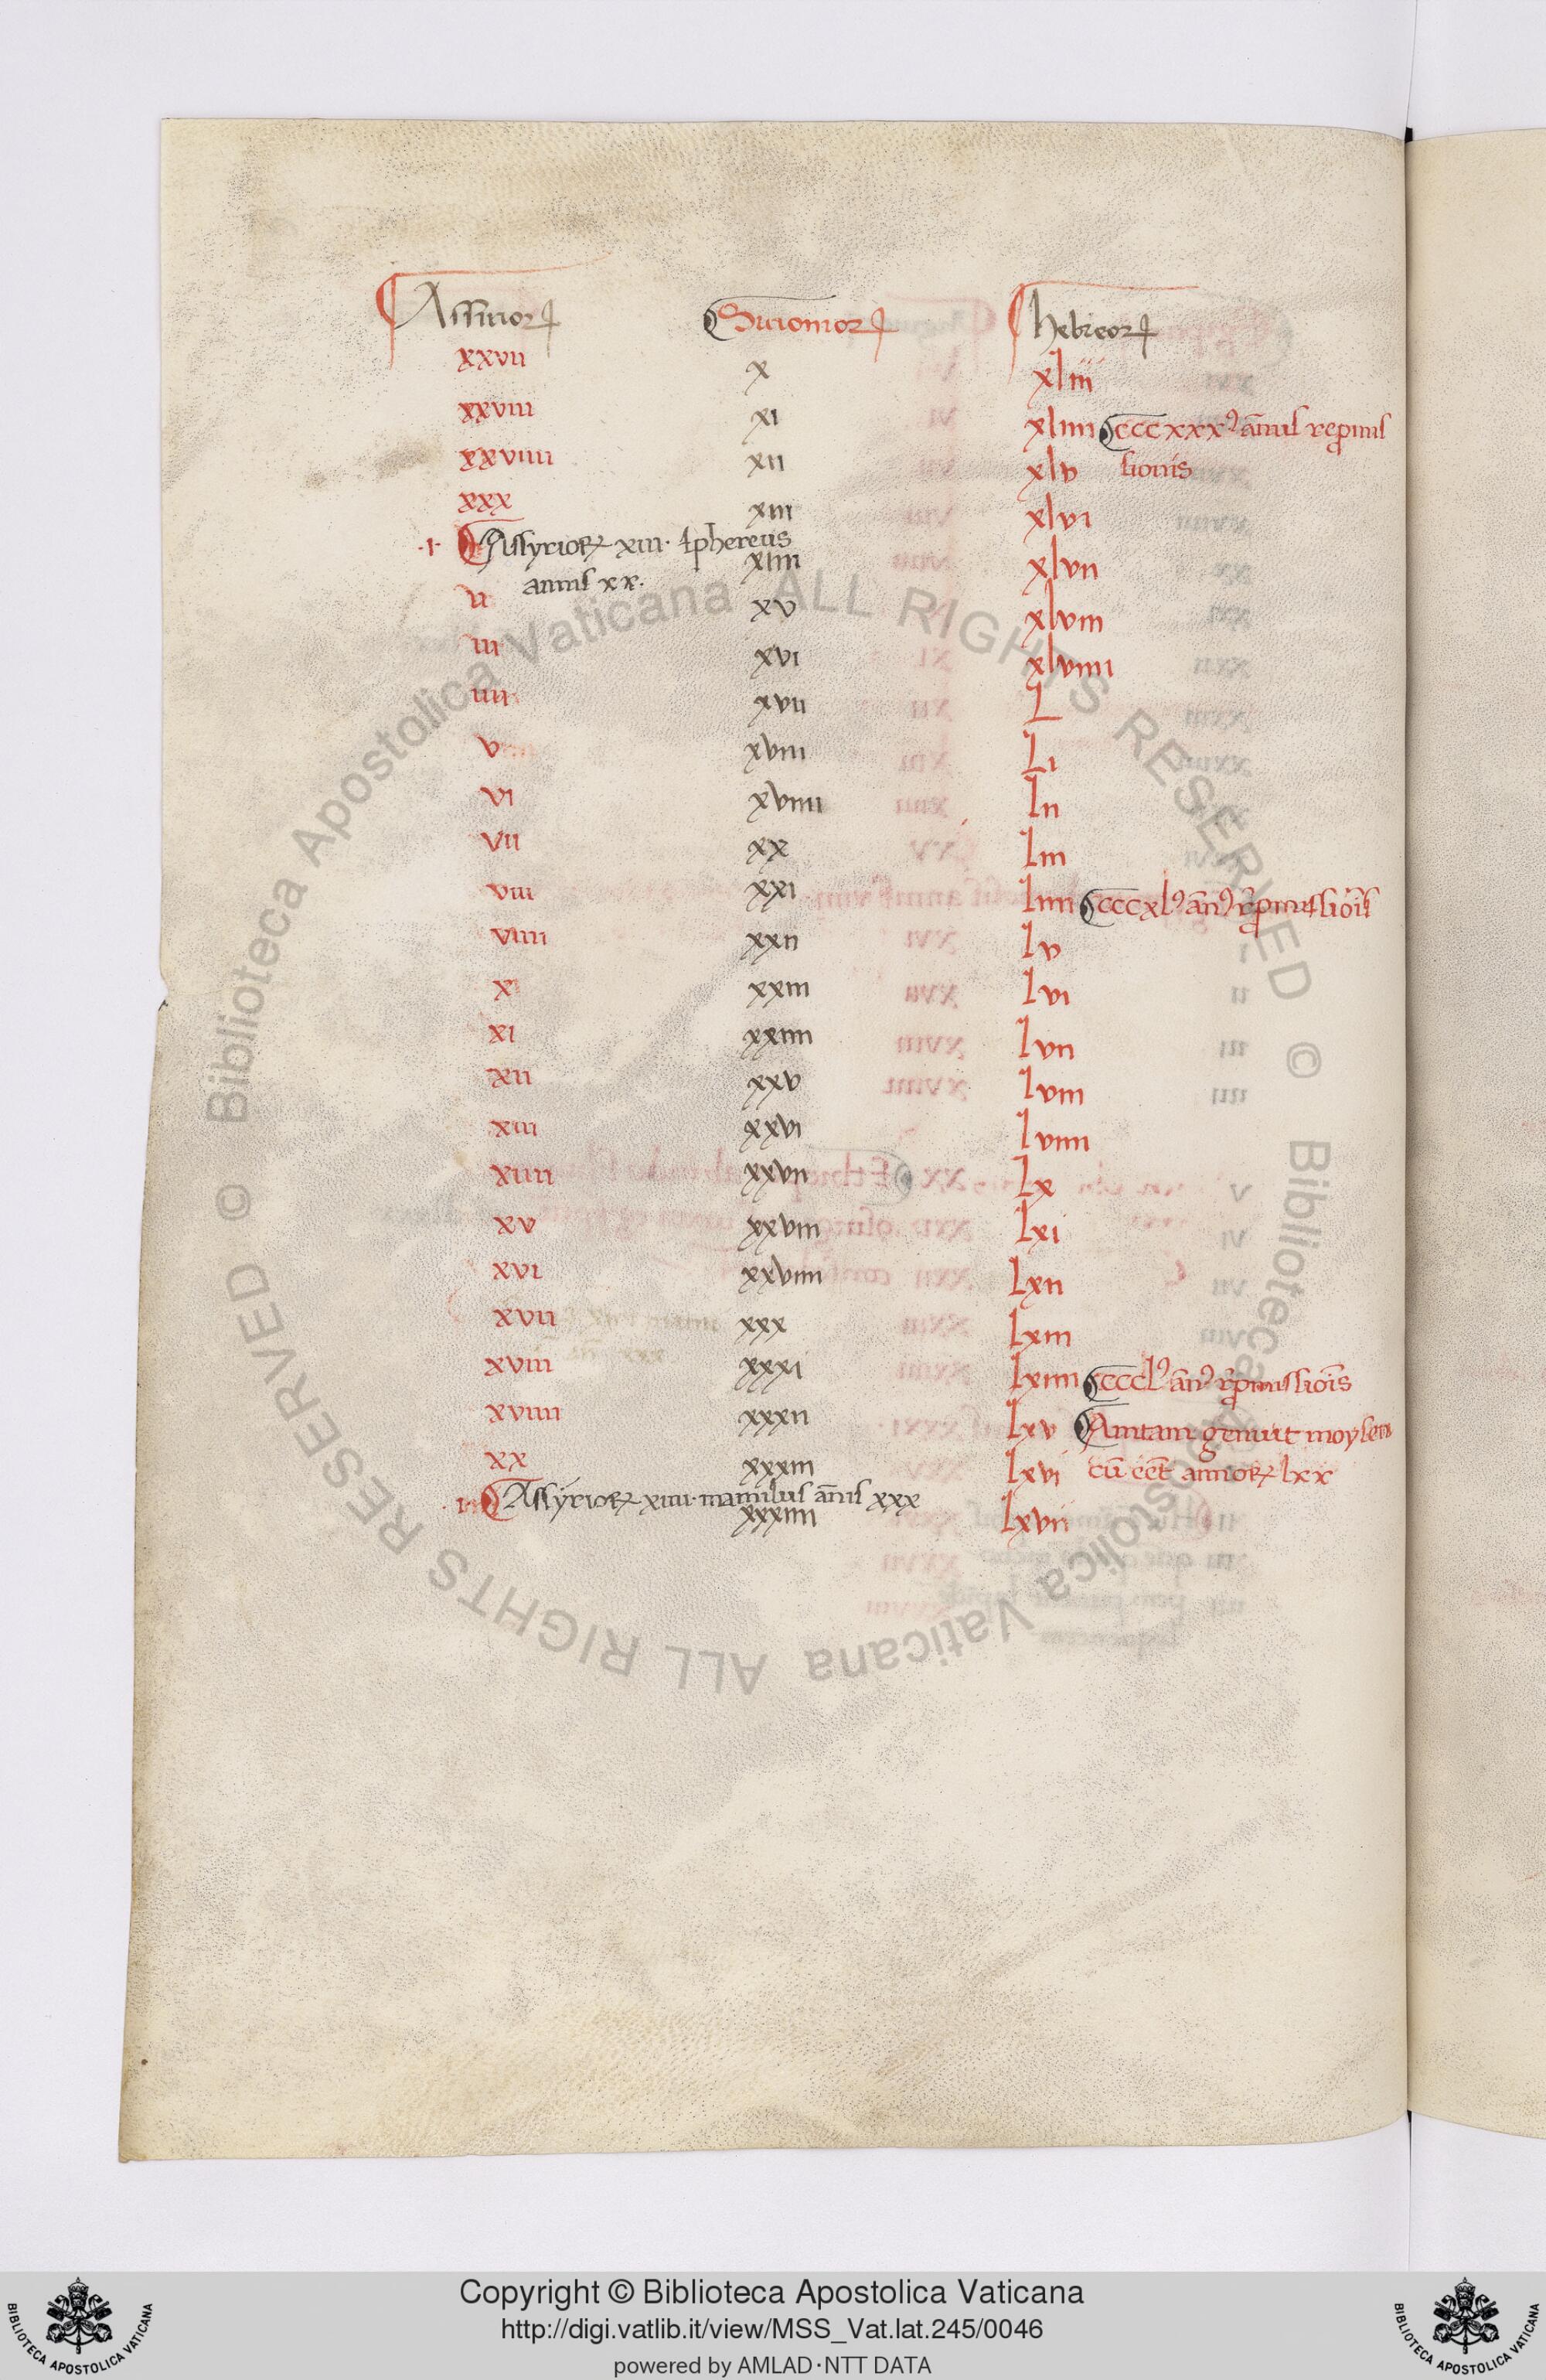 Assirioꝝ Sicionioꝝ hebreoꝝ
xxvii x xliii
xxviii xi xliiii cccxxxꝰ ān̄us repmis
xxviiii xii xlv sionis
xxx xiii xlvi
.i. Assyrioꝝ xiii. sphereus xiiii xlvii
annis xx.
ii xv xlviii
iii xvi xlviiii
iiii xvii L
v xviii Li
vi xviiii Lii
vii xx Liii
viii xxi Liiii cccxlꝰ ān̄ꝰ rep̄missiōis
viiii xxii Lv
x xxiii Lvi
xi xxiiii Lvii
xii xxv Lviii
xiii xxvi Lviiii
xiiii xxvii Lx
xv xxviii Lxi
xvi xxviiii Lxii
xvii xxx Lxiii
xviii xxxi Lxiiii ccclꝰ ān̄ꝰ rep̄missiōis
xviiii xxxii Lxv Amram genuit moysen
xx xxxiii Lxvi cū eēt annoꝝ lxx
.i. Assyrioꝝ xiiii. mamilus ān̄is xxx
xxxiiii Lxvii
© Biblioteca Apostolica Vaticana ALL RIGHTS RESERVED © Biblioteca Apostolica Vaticana ALL RIGHTS RESERVED
Copyright © Biblioteca Apostolica Vaticana
http://digi.vatlib.it/view/MSS_Vat.lat.245/0046
powered by AMLAD·NTT DATA
BIBLIOTECA APOSTOLICA VATICANA
BIBLIOTECA APOSTOLICA VATICANA